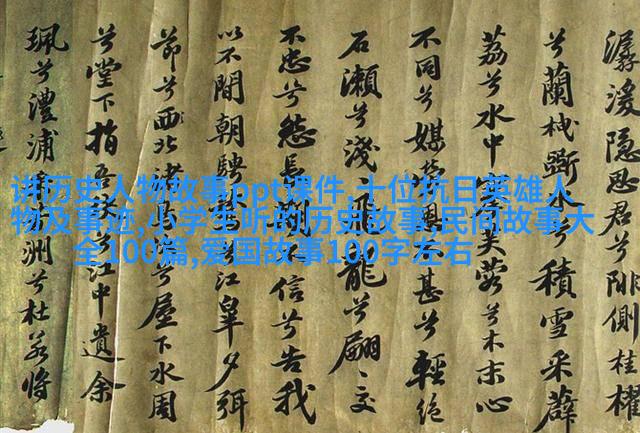 讲历史人物故事ppt课件,十位抗日英雄人
物及事迹,小学生听的历史故事,民间故事大
全100篇,爱国故事100字左右
潺湲隱思君兮陫側桂櫂
兮蘭枻兮積雪采薜
荔兮水中芙蓉兮木末心
不同兮媒不甚兮輕絕
石瀨兮淺淺飛龍兮翩翩交
不忠兮怨長不信兮告我
以不閒朝騁江皋夕弭
節兮北渚兮屋下水周
兮堂下指吾兮江中遺余
珮兮澧浦洲兮杜若將